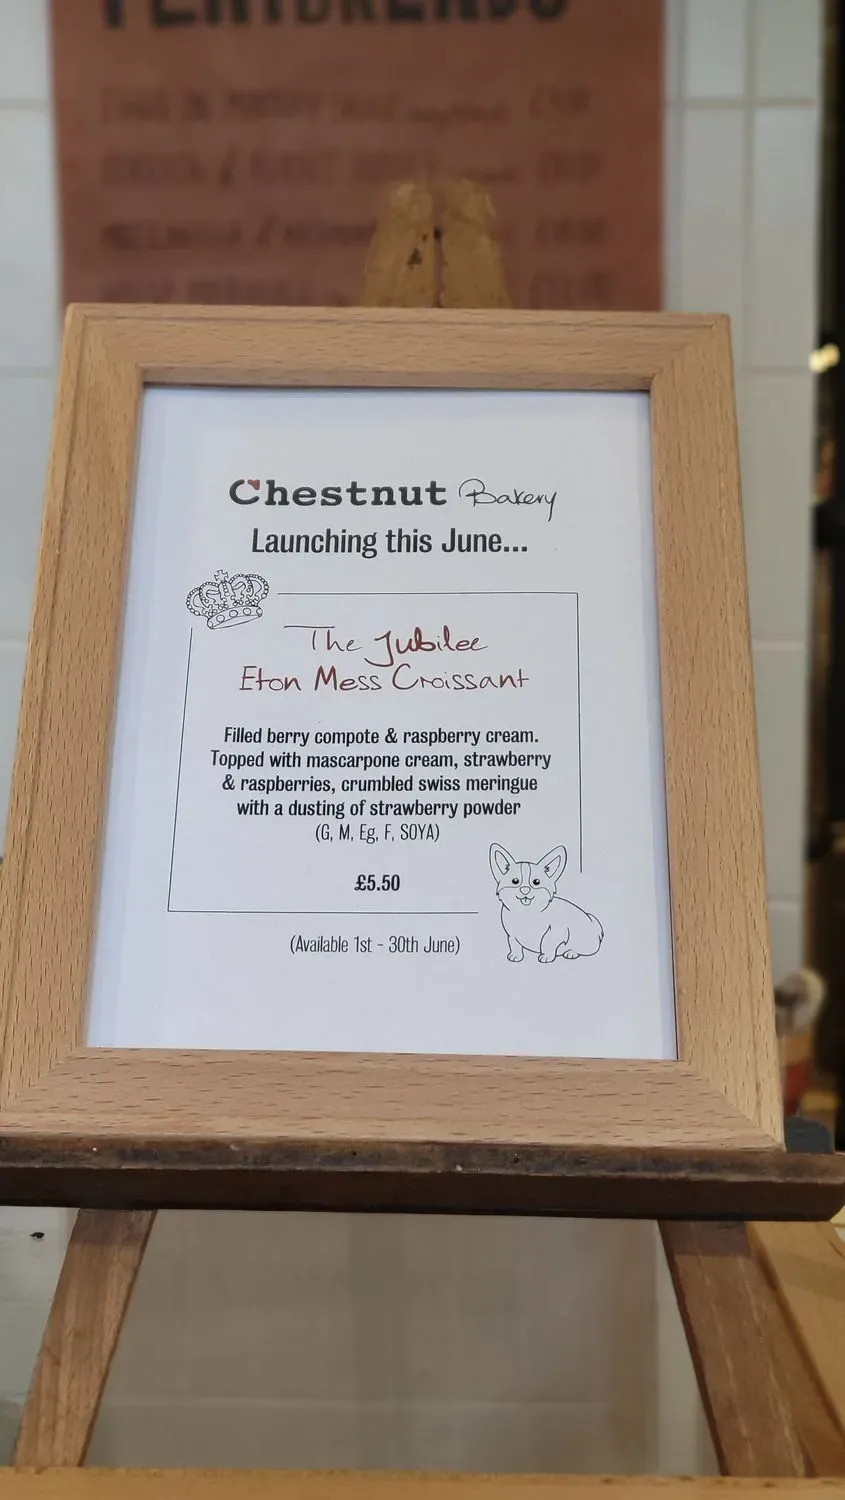 Chestnut Bakery
Launching this June...
The Jubilee
Eton Mess Croissant
Filled berry compote & raspberry cream.
Topped with mascarpone cream, strawberry
& raspberries, crumbled swiss meringue
with a dusting of strawberry powder
(G, M, Eg, F, SOYA)
£5.50
(Available 1st - 30th June)